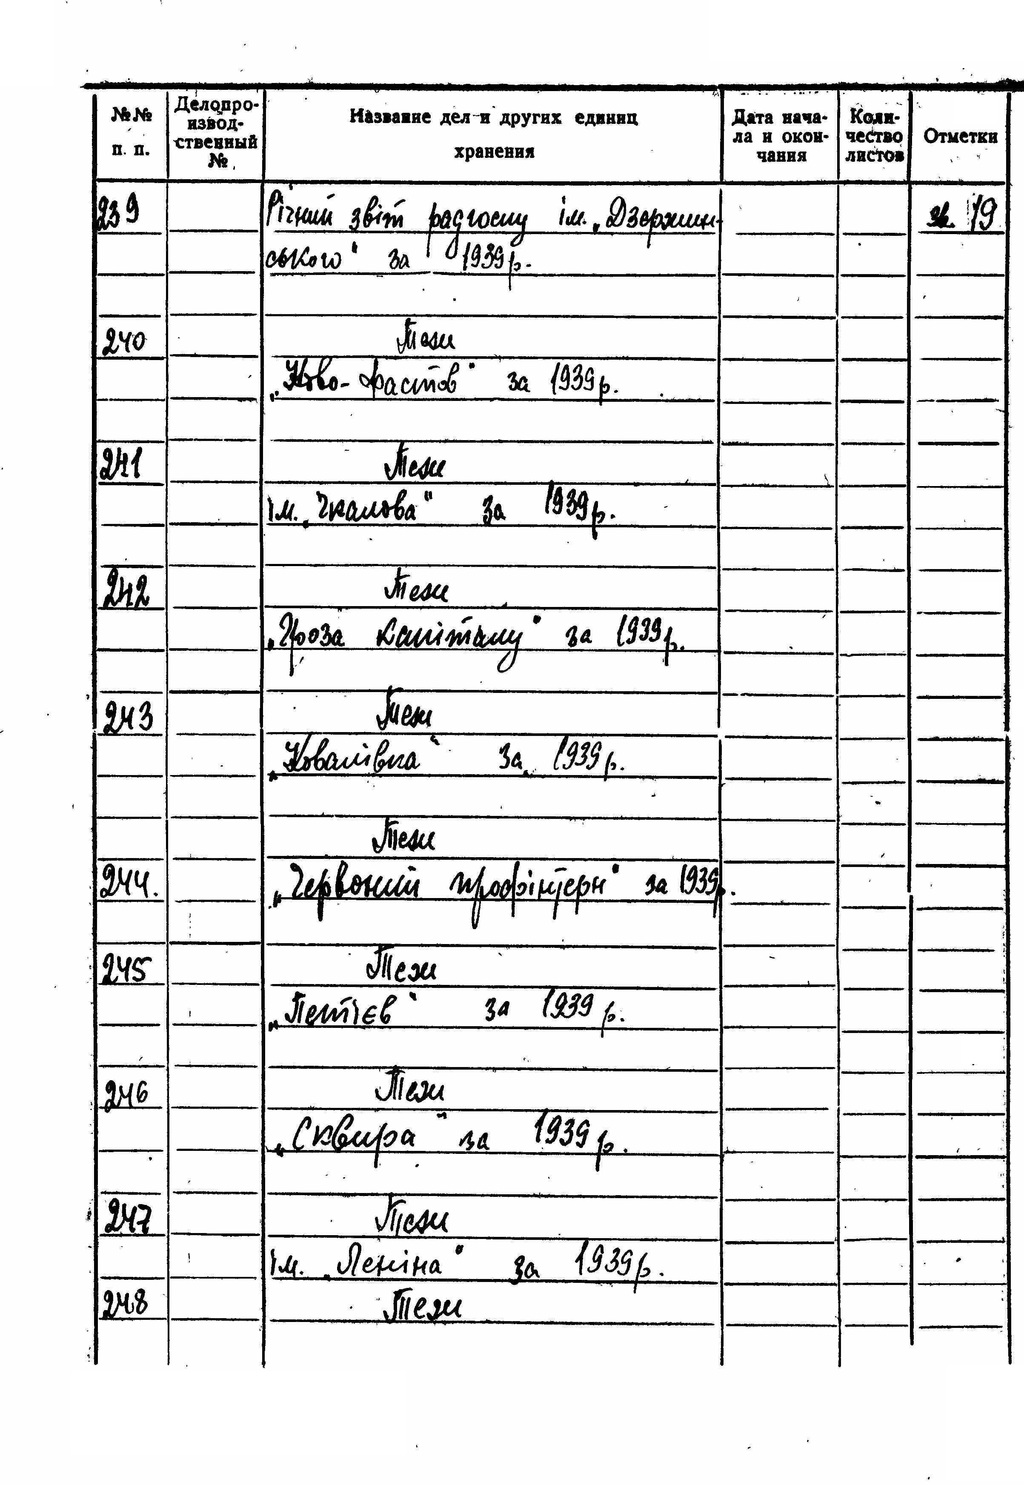 №№ п. п. Делопроизводственный № Название дел и других единиц хранения Дата начала и окончания Количество листов Отметки
239 Річний звіт радгоспу ім. „Дзержин-
ського" за 1939 р.
240 Тези
„Ново-Фастов" за 1939 р.
241 Тези
ім. „Чкалова" за 1939 р.
242 Тези
„Гроза капіталу" за 1939 р.
243 Тези
„Ковалівка" за 1939 р.
Тези
244. „Червоний профінтерн" за 1939 р.
245 Тези
„Тетієв" за 1939 р.
246 Тези
„Сквира" за 1939 р.
247 Тези
ім. „Леніна" за 1939 р.
248 Тези